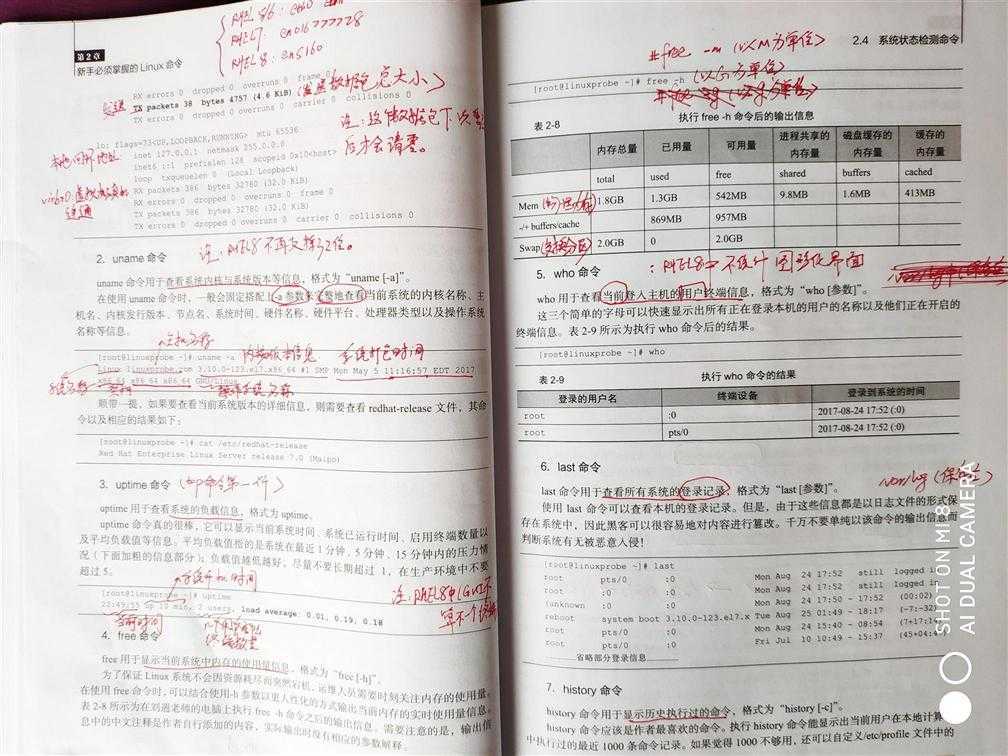 RHEL 5/6: eth0
RHEL7: eno16777728
RHEL8: ens160
第2章
新手必须掌握的 Linux 命令
RX errors 0 dropped 0 overruns 0 frame 0
TX packets 38 bytes 4757 (4.6 KiB)
TX errors 0 dropped 0 overruns 0 carrier 0 collisions 0
lo: flags=73<UP,LOOPBACK,RUNNING> mtu 65536
inet 127.0.0.1 netmask 255.0.0.0
inet6 ::1 prefixlen 128 scopeid 0x10<host>
loop txqueuelen 0 (Local Loopback)
RX packets 386 bytes 32780 (32.0 KiB)
RX errors 0 dropped 0 overruns 0 frame 0
TX packets 386 bytes 32780 (32.0 KiB)
TX errors 0 dropped 0 overruns 0 carrier 0 collisions 0
本地回环地址
2. uname 命令
注: RHEL8不再支持32位。
uname 命令用于查看系统内核与系统版本等信息，格式为“uname [-a]”。
在使用 uname 命令时，一般会固定搭配上-a 参数来完整地查看当前系统的内核名称、主
机名、内核发行版本、节点名、系统时间、硬件名称、硬件平台、处理器类型以及操作系统
名称等信息。
主机名称
内核版本信息
[root@linuxprobe ~]# uname -a
Linux linuxprobe.com 3.10.0-123.el7.x86_64 #1 SMP Mon May 5 11:16:57 EDT 2017
x86_64 x86_64 x86_64 GNU/Linux
顺带一提，如果要查看当前系统版本的详细信息，则需要查看 redhat-release 文件，其命
令以及相应的结果如下：
[root@linuxprobe ~]# cat /etc/redhat-release
Red Hat Enterprise Linux Server release 7.0 (Maipo)
3. uptime 命令
(top命令第一行)
uptime 用于查看系统的负载信息，格式为 uptime。
uptime 命令真的很棒，它可以显示当前系统时间、系统已运行时间、启用终端数量以
及平均负载值等信息。平均负载值指的是系统在最近 1 分钟、5 分钟、15 分钟内的压力情
况（下面加粗的信息部分）；负载值越低越好，尽量不要长期超过 1，在生产环境中不要
超过 5。
[root@linuxprobe ~]# uptime
22:49:55 up 10 min, 2 users, load average: 0.01, 0.19, 0.18
当前时间
4. free 命令
free 用于显示当前系统中内存的使用量信息，格式为“free [-h]”。
为了保证 Linux 系统不会因资源耗尽而突然宕机，运维人员需要时刻关注内存的使用量。
在使用 free 命令时，可以结合使用-h 参数以更人性化的方式输出当前内存的实时使用量信息。
表 2-8 所示为在刘遄老师的电脑上执行 free -h 命令之后的输出信息。需要注意的是，输出信
息中的中文注释是作者自行添加的内容，实际输出时没有相应的参数解释。
2.4 系统状态检测命令
#free -m (以M为单位)
[root@linuxprobe ~]# free -h (以G为单位)
表 2-8 执行 free -h 命令后的输出信息
内存总量 已用量 可用量 进程共享的内存量 磁盘缓存的内存量 缓存的内存量
total used free shared buffers cached
Mem 1.8GB 1.3GB 542MB 9.8MB 1.6MB 413MB
-/+ buffers/cache 869MB 957MB
Swap(交换分区) 2.0GB 0 2.0GB
5. who 命令
: RHEL8中不统计图形化界面
who 用于查看当前登入主机的用户终端信息，格式为“who [参数]”。
这三个简单的字母可以快速显示出所有正在登录本机的用户的名称以及他们正在开启的
终端信息。表 2-9 所示为执行 who 命令后的结果。
[root@linuxprobe ~]# who
表 2-9 执行 who 命令的结果
登录的用户名 终端设备 登录到系统的时间
root :0 2017-08-24 17:52 (:0)
root pts/0 2017-08-24 17:52 (:0)
6. last 命令
last 命令用于查看所有系统的登录记录，格式为“last [参数]”。
使用 last 命令可以查看本机的登录记录。但是，由于这些信息都是以日志文件的形式保
存在系统中，因此黑客可以很容易地对内容进行篡改。千万不要单纯以该命令的输出信息而
判断系统有无被恶意入侵！
[root@linuxprobe ~]# last
root pts/0 :0 Mon Aug 24 17:52 still logged in
root :0 :0 Mon Aug 24 17:52 still logged in
(unknown :0 :0 Mon Aug 24 17:50 - 17:52 (00:02)
reboot system boot 3.10.0-123.el7.x Tue Aug 25 01:49 - 18:17 (-7:-32)
root pts/0 :0 Mon Aug 24 15:40 - 08:54 (7+17:14)
root pts/0 :0 Fri Jul 10 10:49 - 15:37 (45+04:
省略部分登录信息
7. history 命令
history 命令用于显示历史执行过的命令，格式为“history [-c]”。
history 命令应该是作者最喜欢的命令。执行 history 命令能显示出当前用户在本地计算
中执行过的最近 1000 条命令记录。如果觉得 1000 不够用，还可以自定义/etc/profile 文件中的
SHOT ON MI 8
AI DUAL CAMERA